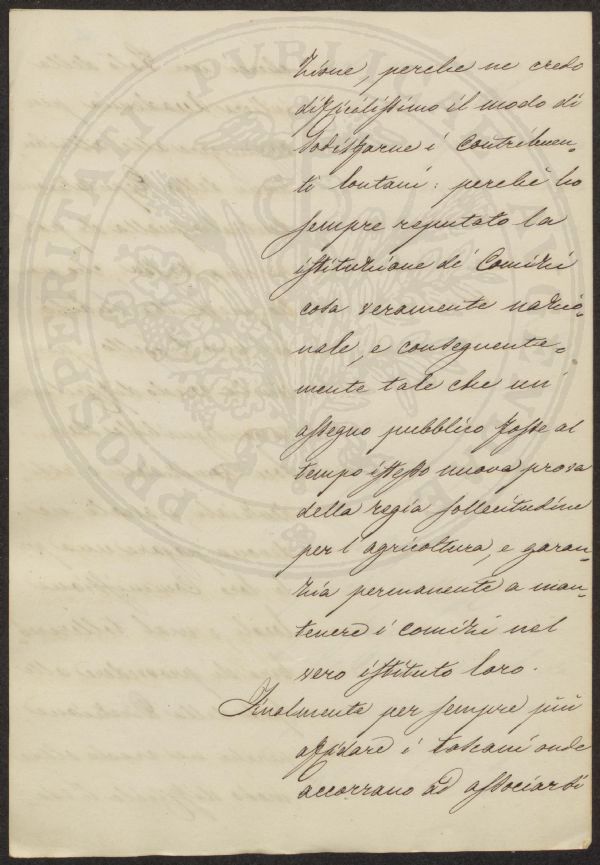 PROSPERITATI PUBLICAE AUGENDAE
zione, perche ne credo
difficilissimo il modo di
sodisfarne i contribuen-
ti lontani: perchè ho
sempre reputato la
istituzione di Comizi
cosa veramente nazio-
nale, e conseguente-
mente tale che un'
assegno pubblico fosse al
tempo istesso nuova prova
della regia sollecitudine
per l'agricoltura, e garan-
zia permanente a man-
tenere i comizi nel
vero istituto loro.
Finalmente per sempre più
affidare i toscani onde
accorrano ad associarsi